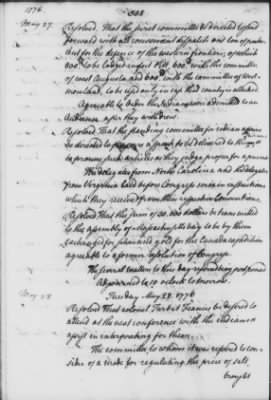 1776 388
May 27 Resolved, That the secret committee be directed to send
forward with all convenient dispatch one ton of powder
out for the defence of the western frontiers, of which
800 lb. to be lodged at Fort Pitt, 600 with the committee
of west Augusta and 600 with the committee of West-
moreland, to be used only in case the country is attacked.
Agreeable to order the Indians were admitted to an
Audience after they withdrew.
Resolved That the standing committee for indian affairs
be directed to prepare a speech to be delivered to the
to procure such articles as they judge proper for a present.
The delegates from North Carolina and the delegates
from Virginia laid before Congress certain instructions
which they received from their respective Conventions.
Resolved That the sum of 30,000 dollars be transmitted
to the assembly of Massachusetts bay to be by them
exchanged for silver and gold for the Canada expedition
agreeable to a former resolution of Congress.
The several matters to this day referred being postponed
Adjourned to 10 o'Clock to morrow.
Tuesday May 28. 1776
May 28 Resolved That colonel Turbot Francis be desired to
attend at the next conference with the indians &
assist in interpreting for them.
The committee to whom it was referred to con-
sider of a mode for regulating the price of salt,
brought